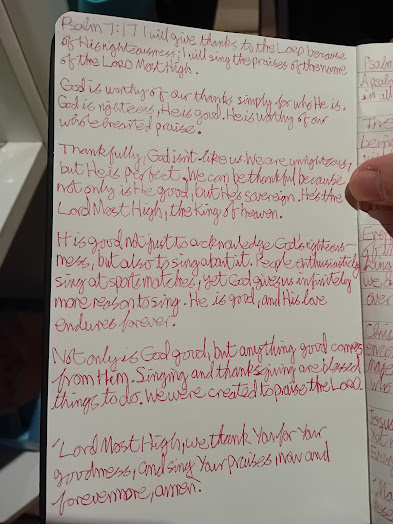 Psalm 7:17 I will give thanks to the Lord because
of His righteousness; I will sing the praises of the name
of the Lord Most High.
God is worthy of our thanks simply for who He is.
God is righteous, He is good. He is worthy of our
whole hearted praise.
Thankfully, God isn't like us. We are unrighteous,
but He is perfect. We can be thankful because
not only is He good, but He's sovereign. He's the
Lord Most High, the King of heaven.
It is good not just to acknowledge God's righteous-
ness, but also to sing about it. People enthusiastically
sing at sports matches, yet God gives us infinitely
more reason to sing. He is good, and His love
endures forever.
Not only is God good, but anything good comes
from Him. Singing and thanksgiving are blessed
things to do. We were created to praise the Lord.
'Lord Most High, we thank You for Your
goodness, and sing Your praises, now and
forevermore, amen.'
Psalm
A psalm
in all
The
being
Every
over
This
who
Jesus